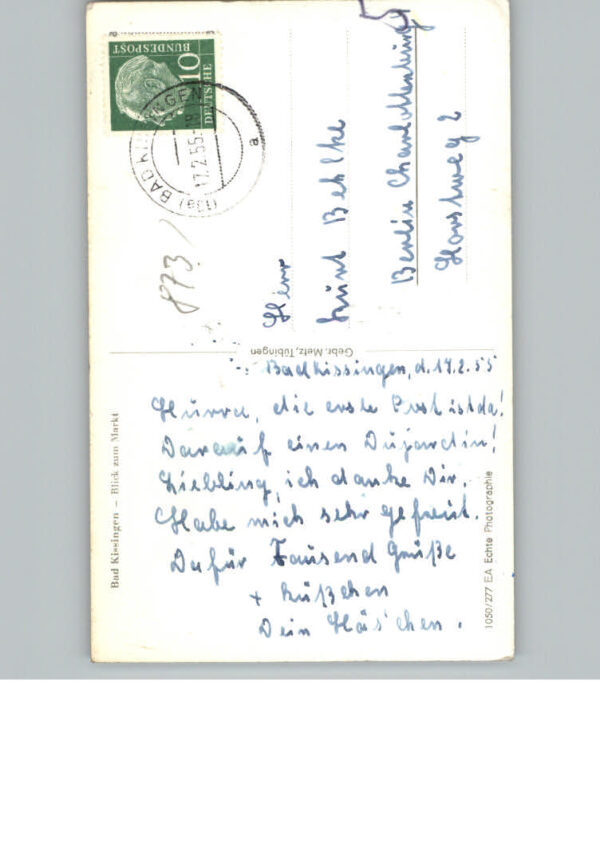 DEUTSCHE
BUNDESPOST
10
(13a) BAD KISSINGEN
17.2.55
a
873
Herr
Kurt Behlke
Berlin Charlottenburg
Horstweg 2
Gebr. Metz, Tübingen
Bad Kissingen, d. 17.2.55
Hurra, die erste Post ist da!
Darauf einen Dujardin!
Liebling, ich danke Dir.
Habe mich sehr gefreut.
Dafür Tausend Grüße
+ Küßchen
Dein Häs'chen.
Bad Kissingen – Blick zum Markt
1050/277 E.A. Echte Photographie